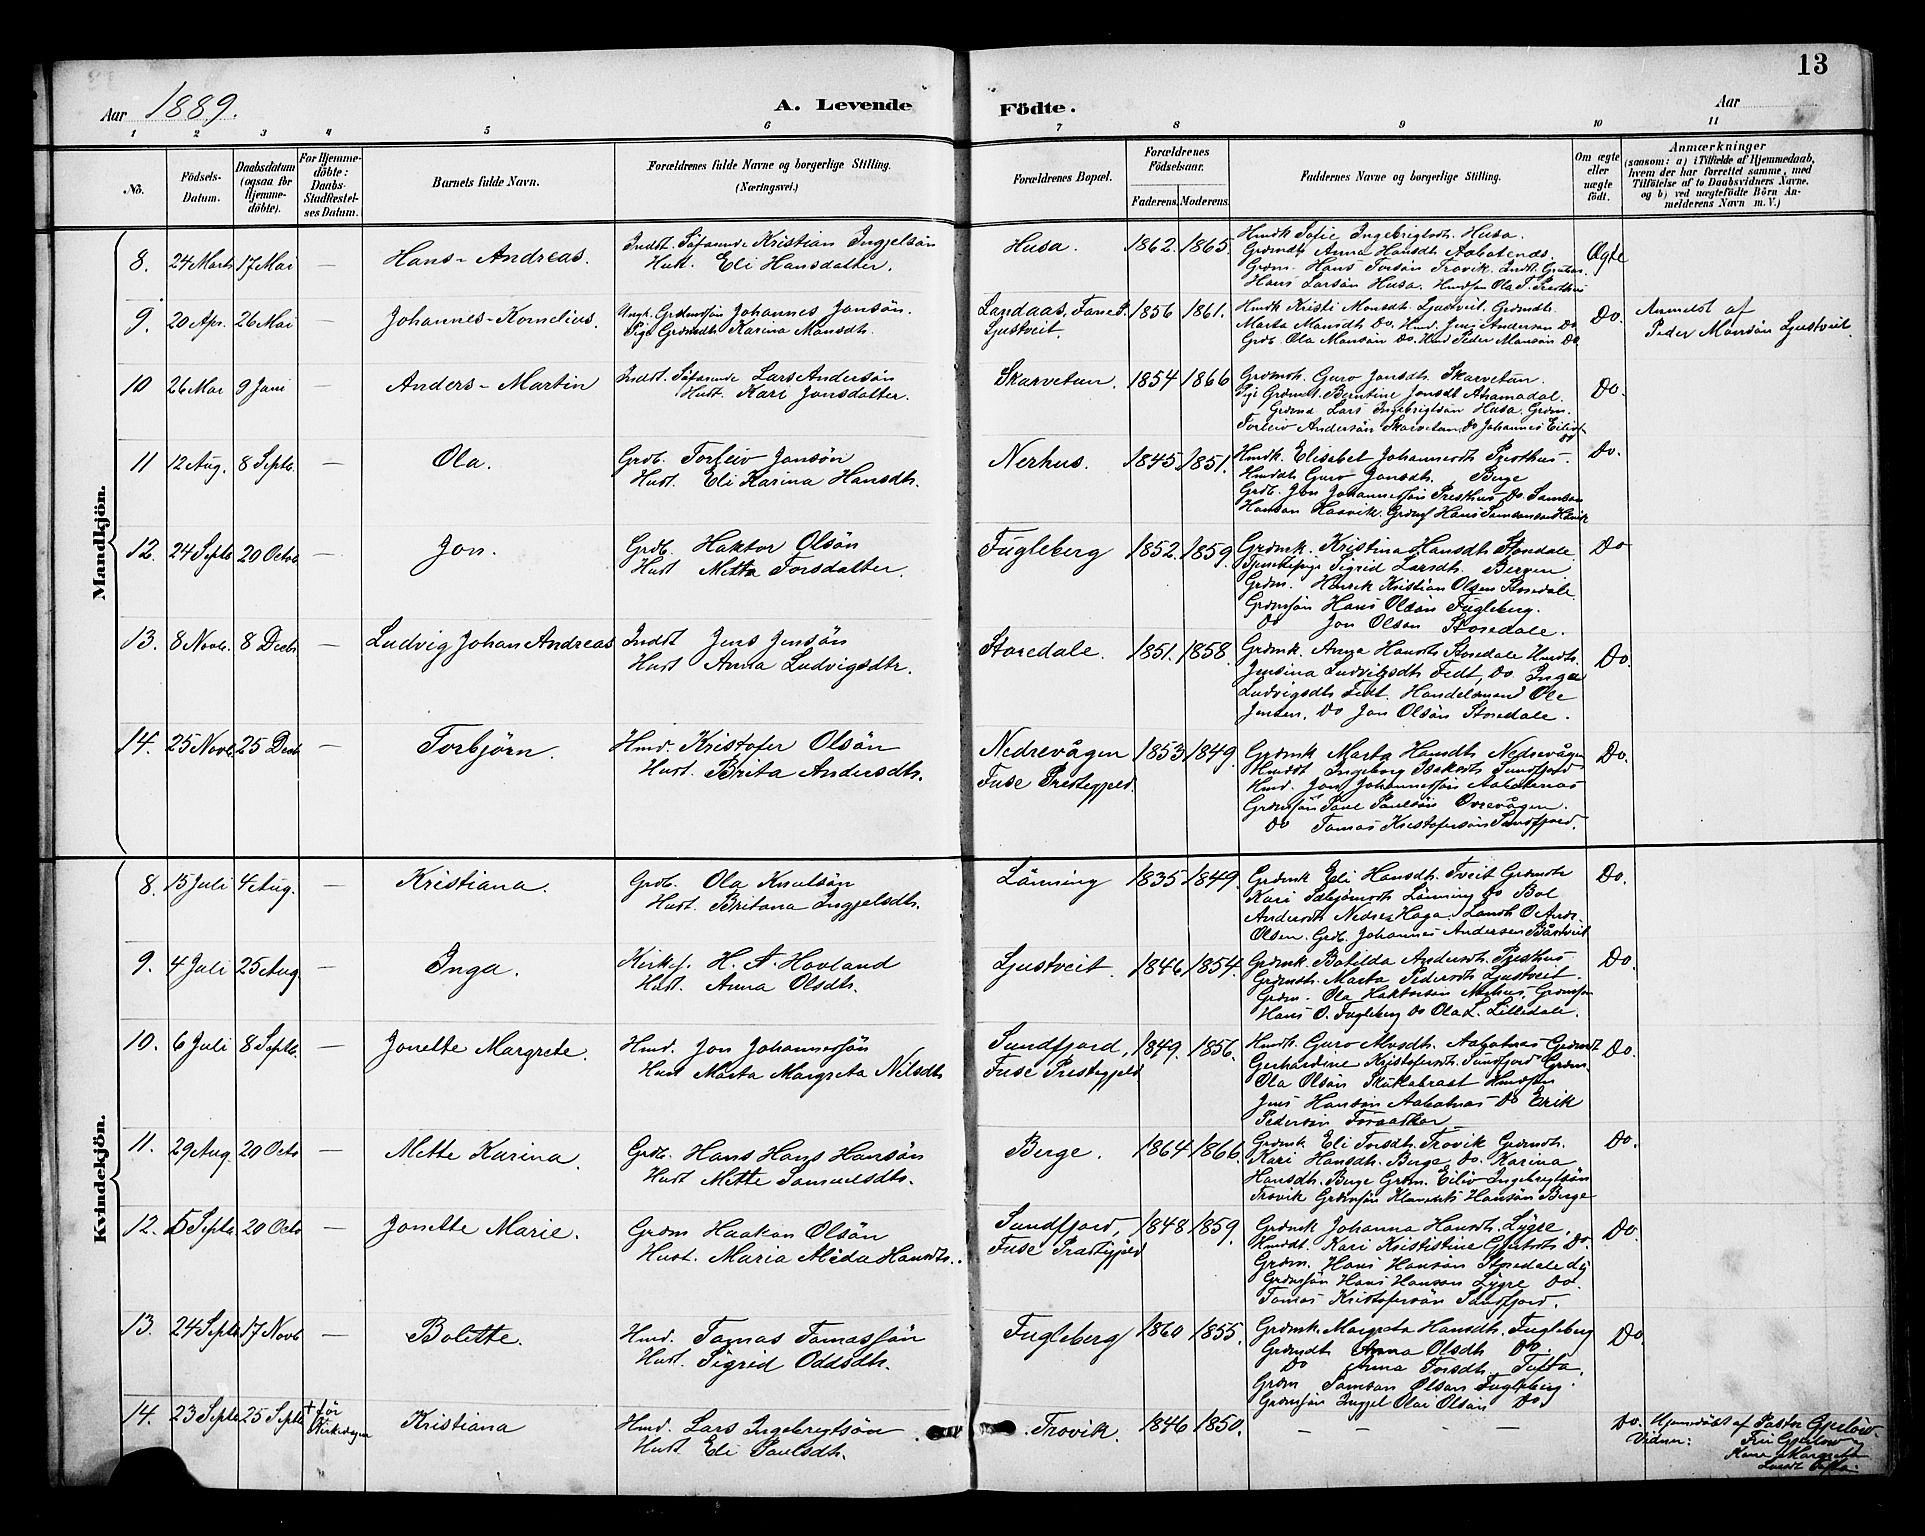 13
Aar 1889.
A. Levende Födte.
Aar
1 2 3 4 5 6 7 8 9 10 11
No.
Födsels-Datum.
Daabsdatum (ogsaa for Hjemme-döbte).
For Hjemme-döbte: Daabs-Stadfæstel-ses Datum.
Barnets fulde Navn.
Forældrenes fulde Navne og borgerlige Stilling.
(Næringsvei.)
Forældrenes Bopæl.
Forældrenes Födselsaar.
Faderens. Moderens.
Faddernes Navne og borgerlige Stilling.
Om ægte eller uægte födt.
Anmærkninger
(saasom: a) i Tilfælde af Hjemmedaab, hvem der har forrettet samme, med Tilföielse af to Daabsvidners Navne, og b) ved uægtefödte Börn An-melderens Navn m. V.)
Mandkjön.
8. 24 Marts 17 Mai — Hans-Andreas.
Indst. Söfarende Kristian Ingjelsön
Hust. Eli Hansdatter.
Husa. 1862. 1865.
Hmdk Sofie Ingebrigtsdt. Husa.
Grdmdt. Anna Hansdt Aabotenas.
Grdm. Hans Torsön Trovik.
Hans Larsön Husa.
Ægte
9. 20 Apr. 26 Mai — Johannes-Kornelius.
Ungk. Grdmdsön Johannes Jonsön.
Pige Grdmdt. Karina Monsdt.
Landaas, Faneö.
Ljustveit.
1856 1861.
Hmdk Kristi Monsdt. Ljustveit. Grdmdt.
Marta Monsdt Do. Hmd. Jens Andersen Do
Grdb. Ola Monsön Do. Hmd Peder Monsön Do
Do.
Anmeldt af
Peder Monsön Ljustveit.
10 26 Mai 9 Juni — Anders-Martin
Indst. Söfarende Lars Andersön
Hust. Kari Jonsdatter.
Skarvetun. 1854 1866
Grdmdt. Guro Jonsdt. Skarvetun.
Pige Grdmdt. Berntine Jonsdt
Grdmd Lars Ingebrigtsön Husa. Grdm.
Torleiv Andersön Skarvetun, Do Johannes
Do.
11 12 Aug. 8 Septb. — Ola.
Grdb. Torleiv Jonsön
Hust. Eli Karina Hansdt.
Nerhus. 1845. 1851.
Hmdk. Elisabet Johannesdt. Presthus.
Hmdt. Guro Jonsdt. Berge
Grdb. Jon Johannessön Presthus. Do. Samson
Hanson Haavik. Hans Samsonsen Haavik
Do.
12. 24 Septb 20 Octob. — Jon.
Grdb. Haktor Olsön
Hust Metta Torsdatter.
Fugleberg 1852. 1859.
Grdmk. Kristina Hansdt. Storedale
Tjenestepige Sigrid Larsdt. Bergen
Grdm. Henrik Kristian Olsen Storedale.
Grdmsön Hans Olsön Fugleberg.
Do Jon Olson Storedale.
Do
13. 8 Novb. 8 Decb. — Ludvig Johan Andreas
Indst Jens Jensön
Hust Anna Ludvigsdtr.
Storedale. 1851. 1858.
Grdmk. Anna Hansdt Storedale Hmdt.
Jensina Ludvigsdt Tedt, Do. Inga
Ludvigsdt Tedt. Handelsmand Ole
Jensen, Do Jon Olsön Storedale.
Do.
14. 25 Novb. 25 Decb. — Torbjörn.
Hmd. Kristofer Olsön
Hust. Brita Andersdt.
Nedrevågen
Fuse Prestegjeld.
1853 1849.
Grdmk Marta Hansdt. Nedrevågen
Hmdt Ingeborg Isaksdt. Sundfjord
Hmd. Jon Johannessön Aabotenas
Grdmsön Povel Paulsön Övrevågen.
Do Tomas Kristofersön Sundfjord.
Do.
Kvindekjön.
8. 15 Juli 4 Aug. — Kristiana.
Grdb. Ola Knutsön
Hust. Britana Ingjelsdt.
Lönning 1835 1849.
Grdmk Eli Hansdt. Tveit Grdmdt
Kari Sebjörnsdt Lönning Do Bol
Andersdt Nedre Haga. Landh O Andr.
Olsen. Grdb. Johannes Andersen Båstveit
Do.
9. 4 Juli 25 Aug — Inga.
Kirkes. H. A. Hovland
Hust. Anna Olsdt.
Ljustveit. 1846 1854.
Grdmk. Botilda Andersdt. Presthus
Grdmdt. Marta Pedersdt Ljustveit.
Grdm. Ola Haktorsön Nerhus, Grdmsön
Hans O. Fugleberg Do Ola L. Lilledale.
Do.
10. 6 Juli 8 Septb. — Jonette Margrete.
Hmd. Jon Johannessön
Hust Marta Margreta Nilsdt
Sundfjord,
Fuse Prestegjeld
1849. 1856.
Hmdt. Guro Monsdt. Aabotnas Grdmdt
Gerhardine Kristofersdt Sundfjord Grdm.
Ola Olsön Skåklabrast Hmdsön
Jens Hansön Aabotnas Do Erik
Pedersön
Do.
11. 29 Aug. 20 Octo — Mette Karina.
Grdb. Hans Hans Hansön
Hust Mette Samuelsdt.
Berge. 1864 1866.
Grdmk. Eli Torsdt. Trovik Grdmdt.
Kari Hansdt. Berge Do. Karina
Hansdt. Berge Grdm. Eiliv Ingebrigtsön
Trovik Grdmsön Hansön Berge
Do.
12. 5 Septb 20 Octo — Jonette Marie.
Grdm Haakon Olsön
Hust. Maria Alida Hansdt.
Sundfjord,
Fuse Prestegjeld
1848. 1859.
Grdmk Johanna Hansdt. Lygre.
Hmdt. Kari Krististine Do.
Grdm. Hans Hansön Storedale
Grdmsön Hans Hanson Lygre Do.
Tomas Kristofersön Sundfjord.
Do.
13. 24 Septb 17 Novb — Bolette.
Hmd. Tomas Tomassön
Hust. Sigrid Oddsdt.
Fugleberg 1860 1855.
Grdmk. Margreta Hansdt. Fugleberg
Grdmdt. Anna Olsdt Do.
Do Anna Torsdt. Tufta.
Grdm Samson Olson Fugleberg.
Grdmsön Ingjel Olai Olsön Do
Do.
14. 23 Septb 25 Septb + för Kirkedagen
Kristiana
Hmd. Lars Ingebrigtsön
Hust. Eli Paulsdt.
Trovik. 1846 1850. — — — —
Do. Hjemmedöbt af Pastor Gjerlöw.
Vidner: Fru Gjerlow